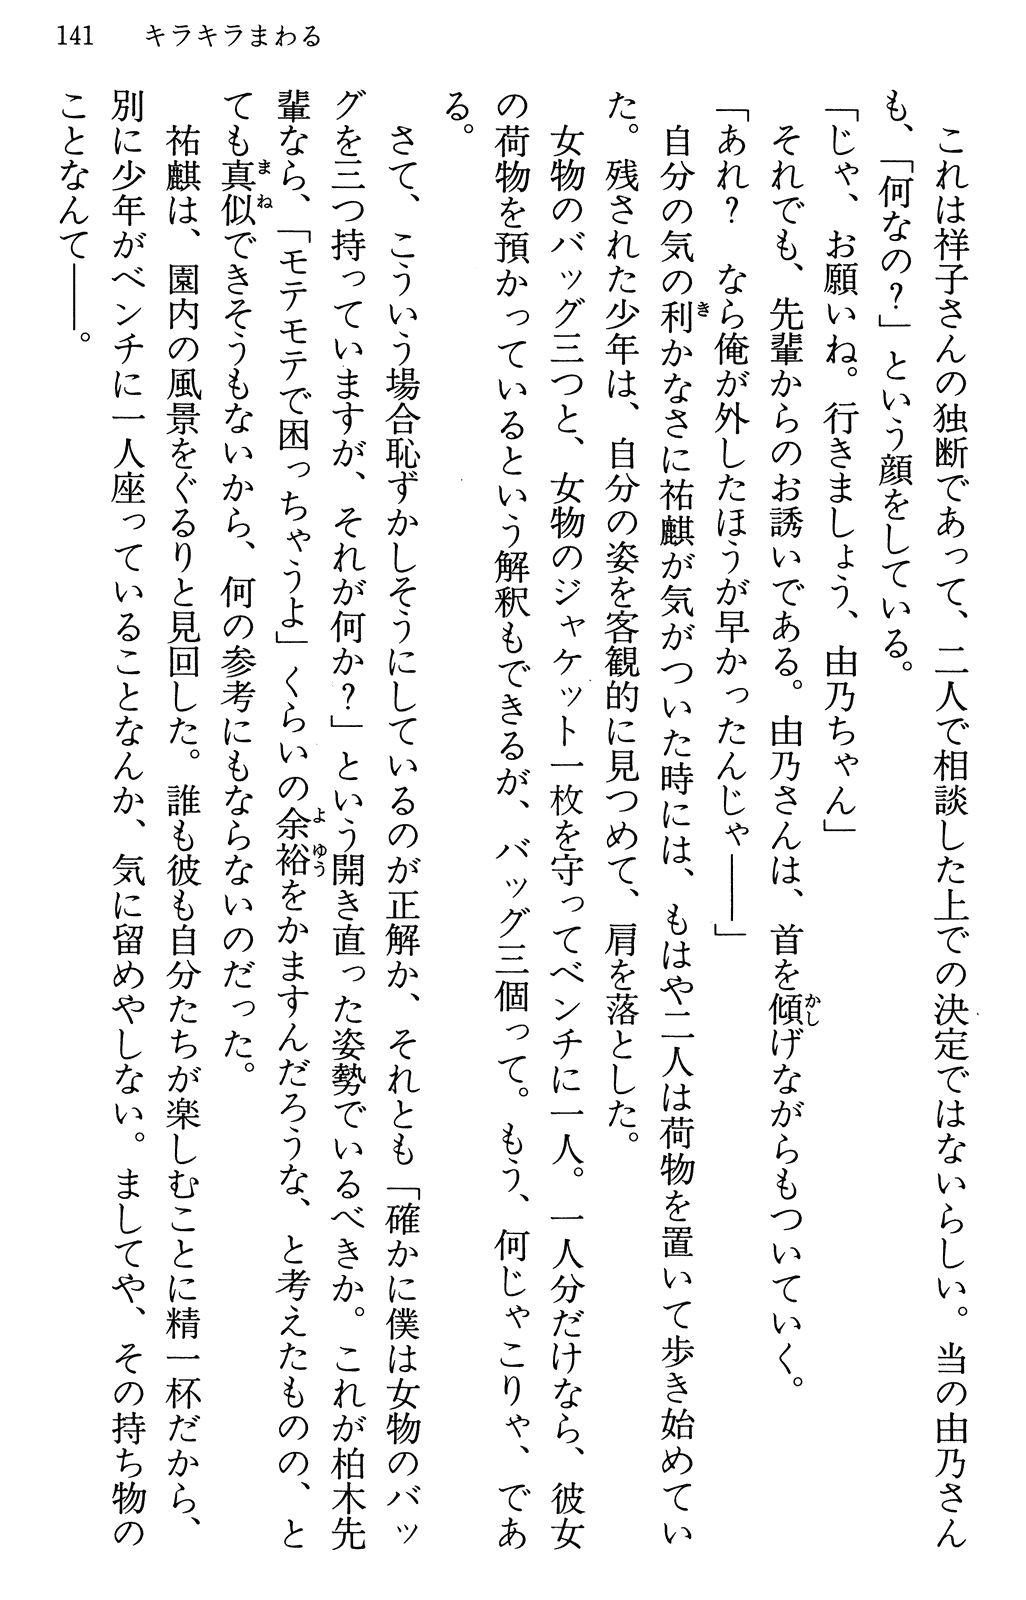 141　キラキラまわる
　これは祥子さんの独断であって、二人で相談した上での決定ではないらしい。当の由乃さん
も、「何なの？」という顔をしている。
「じゃ、お願いね。行きましょう、由乃ちゃん」
　それでも、先輩からのお誘いである。由乃さんは、首を傾げながらもついていく。
「あれ？　なら俺が外したほうが早かったんじゃ――」
　自分の気の利かなさに祐麒が気がついた時には、もはや二人は荷物を置いて歩き始めてい
た。残された少年は、自分の姿を客観的に見つめて、肩を落とした。
　女物のバッグ三つと、女物のジャケット一枚を守ってベンチに一人。一人分だけなら、彼女
の荷物を預かっているという解釈もできるが、バッグ三個って。もう、何じゃこりゃ、であ
る。
　さて、こういう場合恥ずかしそうにしているのが正解か、それとも「確かに僕は女物のバッ
グを三つ持っていますが、それが何か？」という開き直った姿勢でいるべきか。これが柏木先
輩なら、「モテモテで困っちゃうよ」くらいの余裕をかますんだろうな、と考えたものの、と
ても真似できそうもないから、何の参考にもならないのだった。
　祐麒は、園内の風景をぐるりと見回した。誰も彼も自分たちが楽しむことに精一杯だから、
別に少年がベンチに一人座っていることなんか、気に留めやしない。ましてや、その持ち物の
ことなんて――。